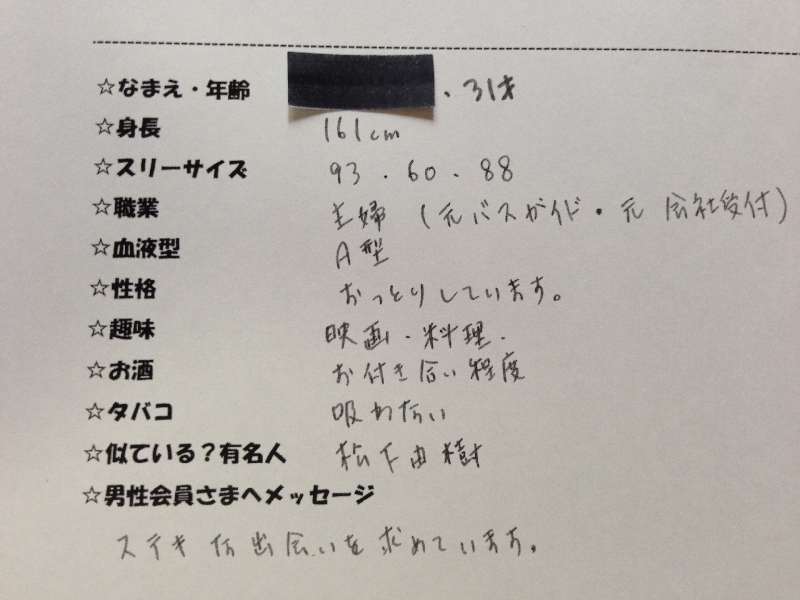 ☆なまえ・年齢 ・31才
☆身長 161cm
☆スリーサイズ 93.60.88
☆職業 主婦(元バスガイド・元 会社受付)
☆血液型 A型
☆性格 おっとりしています。
☆趣味 映画・料理.
☆お酒 お付き合い程度
☆タバコ 吸わない
☆似ている?有名人 松下由樹
☆男性会員さまへメッセージ
ステキな出会いを求めています。